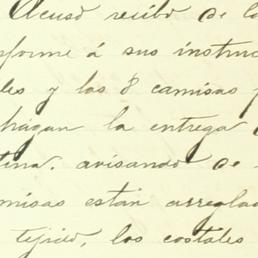 Acuso recibo de la
nforme á sus instruc
les y las 8 camisas
hagan la entrega
tina, avisando de
misas están arregla
tejido, los costales